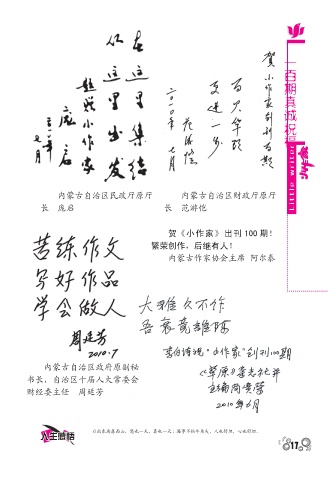 贺小作家创刊百期
百尺竿头
更进一步
范游恺
二〇一〇年七月
在这里集结
从这里出发
题赠小作家
庞启
二〇一〇年七月
一百期真诚祝福
Little writer
内蒙古自治区民政厅原厅
长　庞启
内蒙古自治区财政厅原厅
长　范游恺
贺《小作家》出刊100期！
繁荣创作，后继有人！
内蒙古作家协会主席　阿尔泰
苦练作文
写好作品
学会做人
周廷芳
2010.7
大雅久不作
吾衰竟谁陈
李白诗说“小作家”创刊100期
《草原》杂志社
主编尚贵荣
2010年6月
内蒙古自治区政府原副秘
书长，自治区十届人大常委会
财经委主任　周廷芳
人生感悟
17